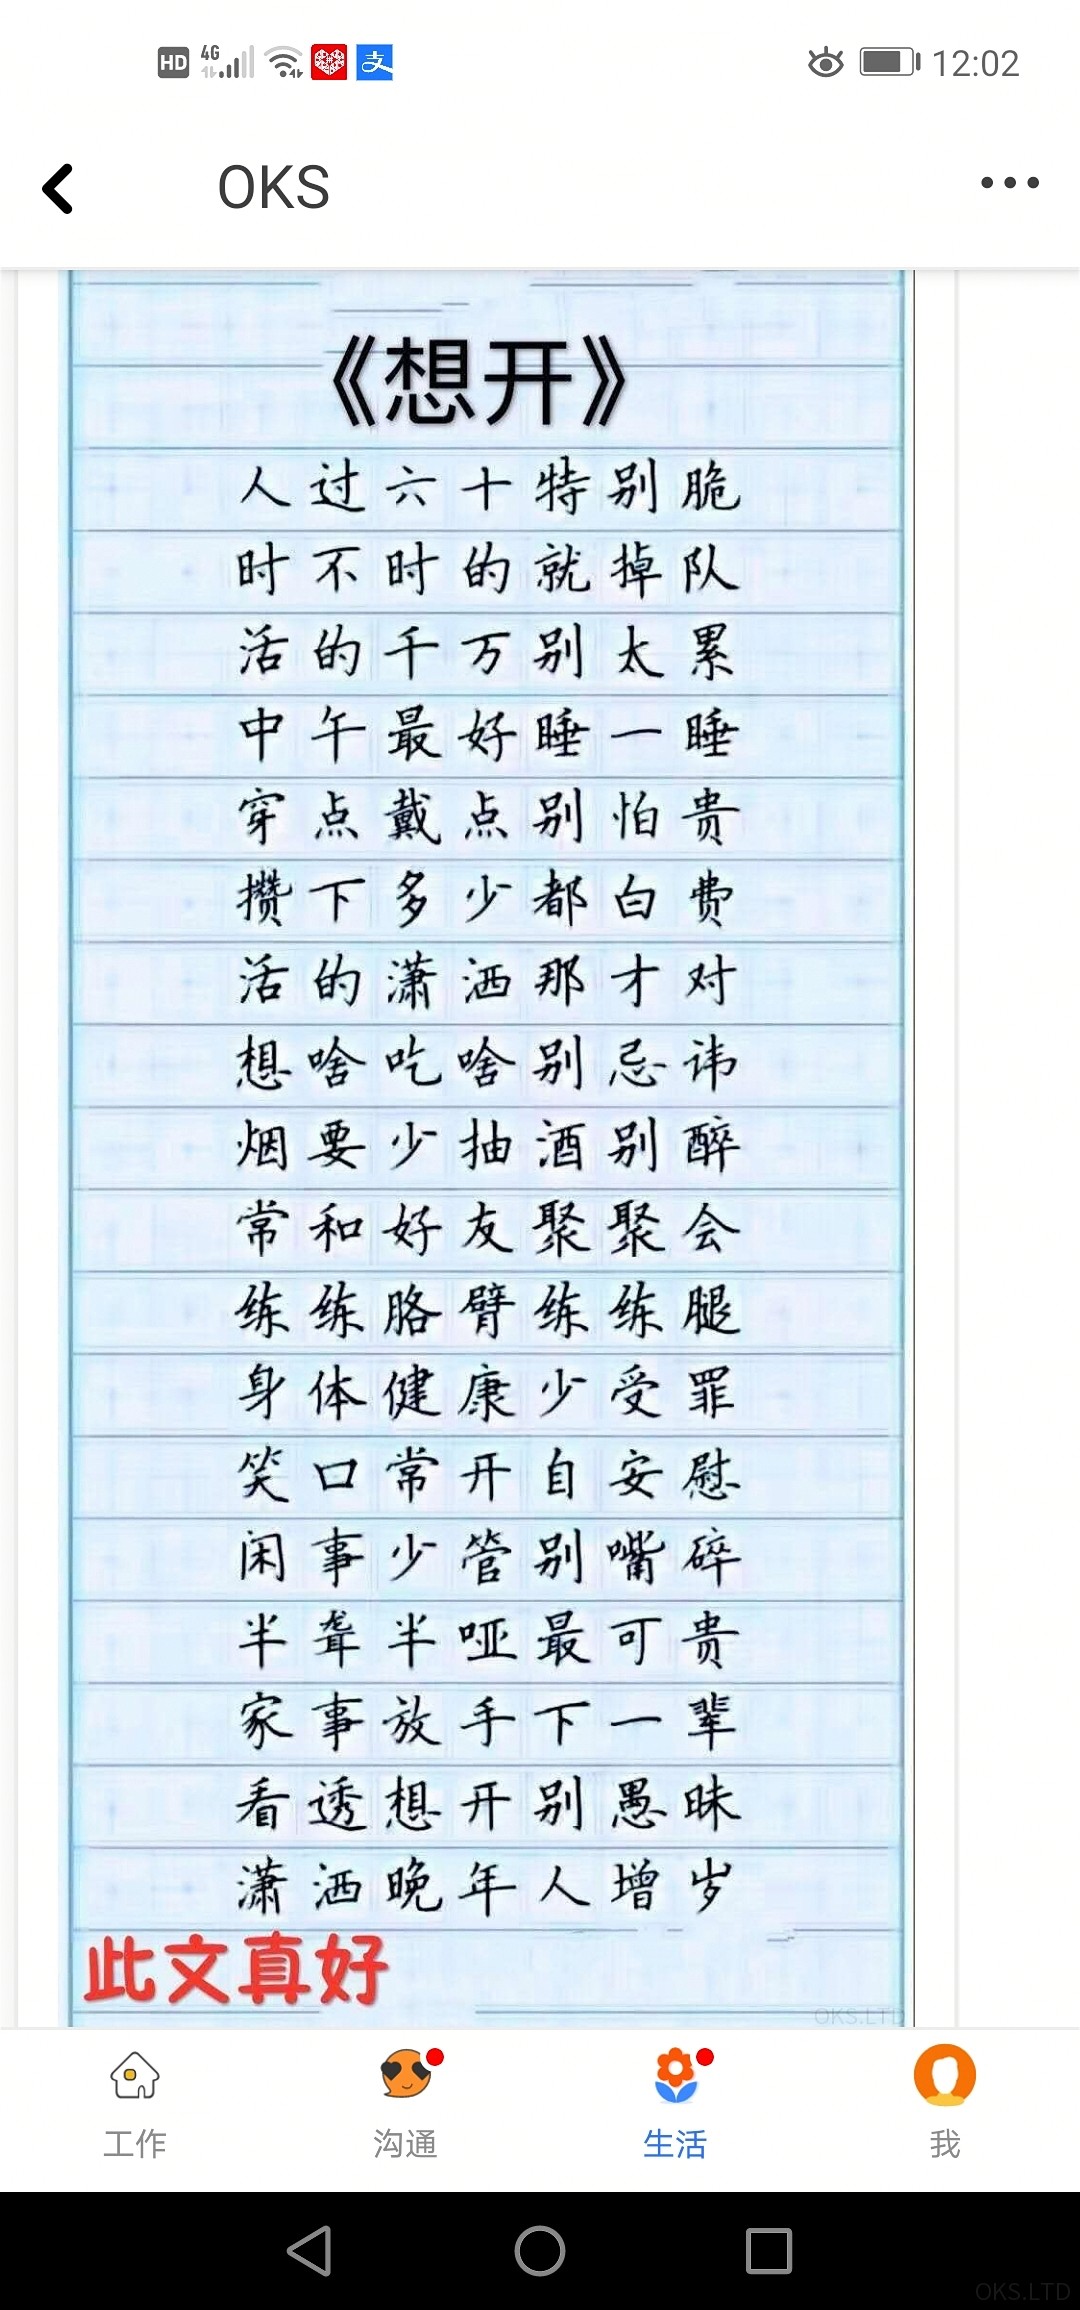 HD 4G 支 12:02
OKS
《想开》
人过六十特别脆
时不时的就掉队
活的千万别太累
中午最好睡一睡
穿点戴点别怕贵
攒下多少都白费
活的潇洒那才对
想啥吃啥别忌讳
烟要少抽酒别醉
常和好友聚聚会
练练胳臂练练腿
身体健康少受罪
笑口常开自安慰
闲事少管别嘴碎
半聋半哑最可贵
家事放手下一辈
看透想开别愚昧
潇洒晚年人增岁
此文真好
OKS.LTD
工作 沟通 生活 我
OKS.LTD